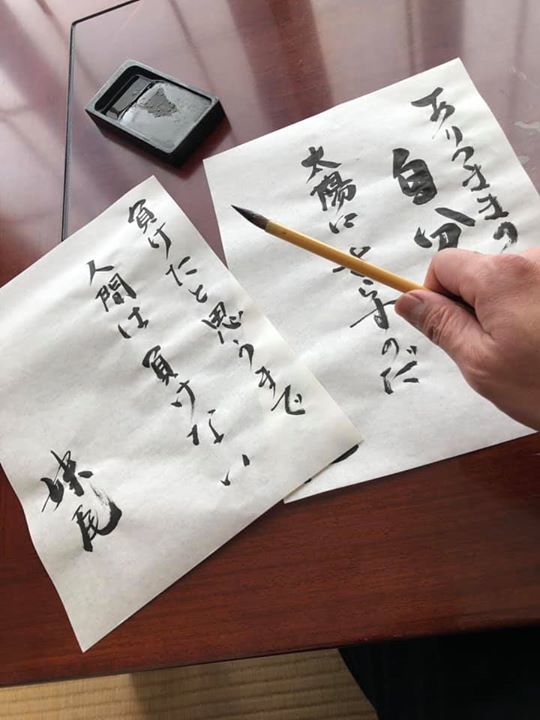 ありのままの
自分
太陽にさらすのだ
負けたと思うまで
人間は負けない
妹尾